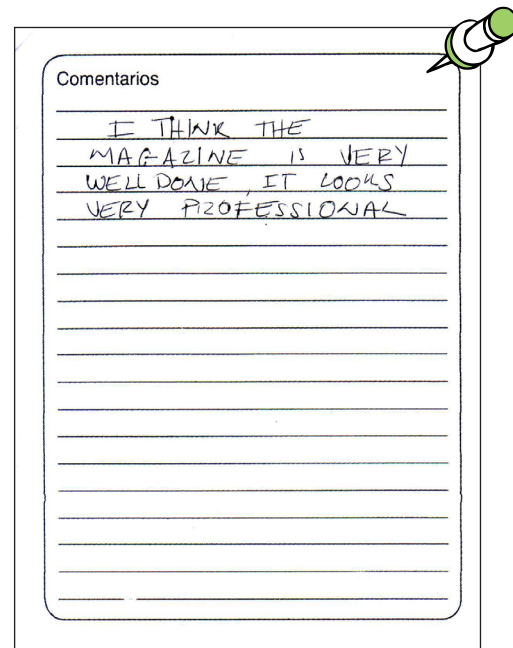 Comentarios
I THINK THE
MAGAZINE IS VERY
WELL DONE, IT LOOKS
VERY PROFESSIONAL